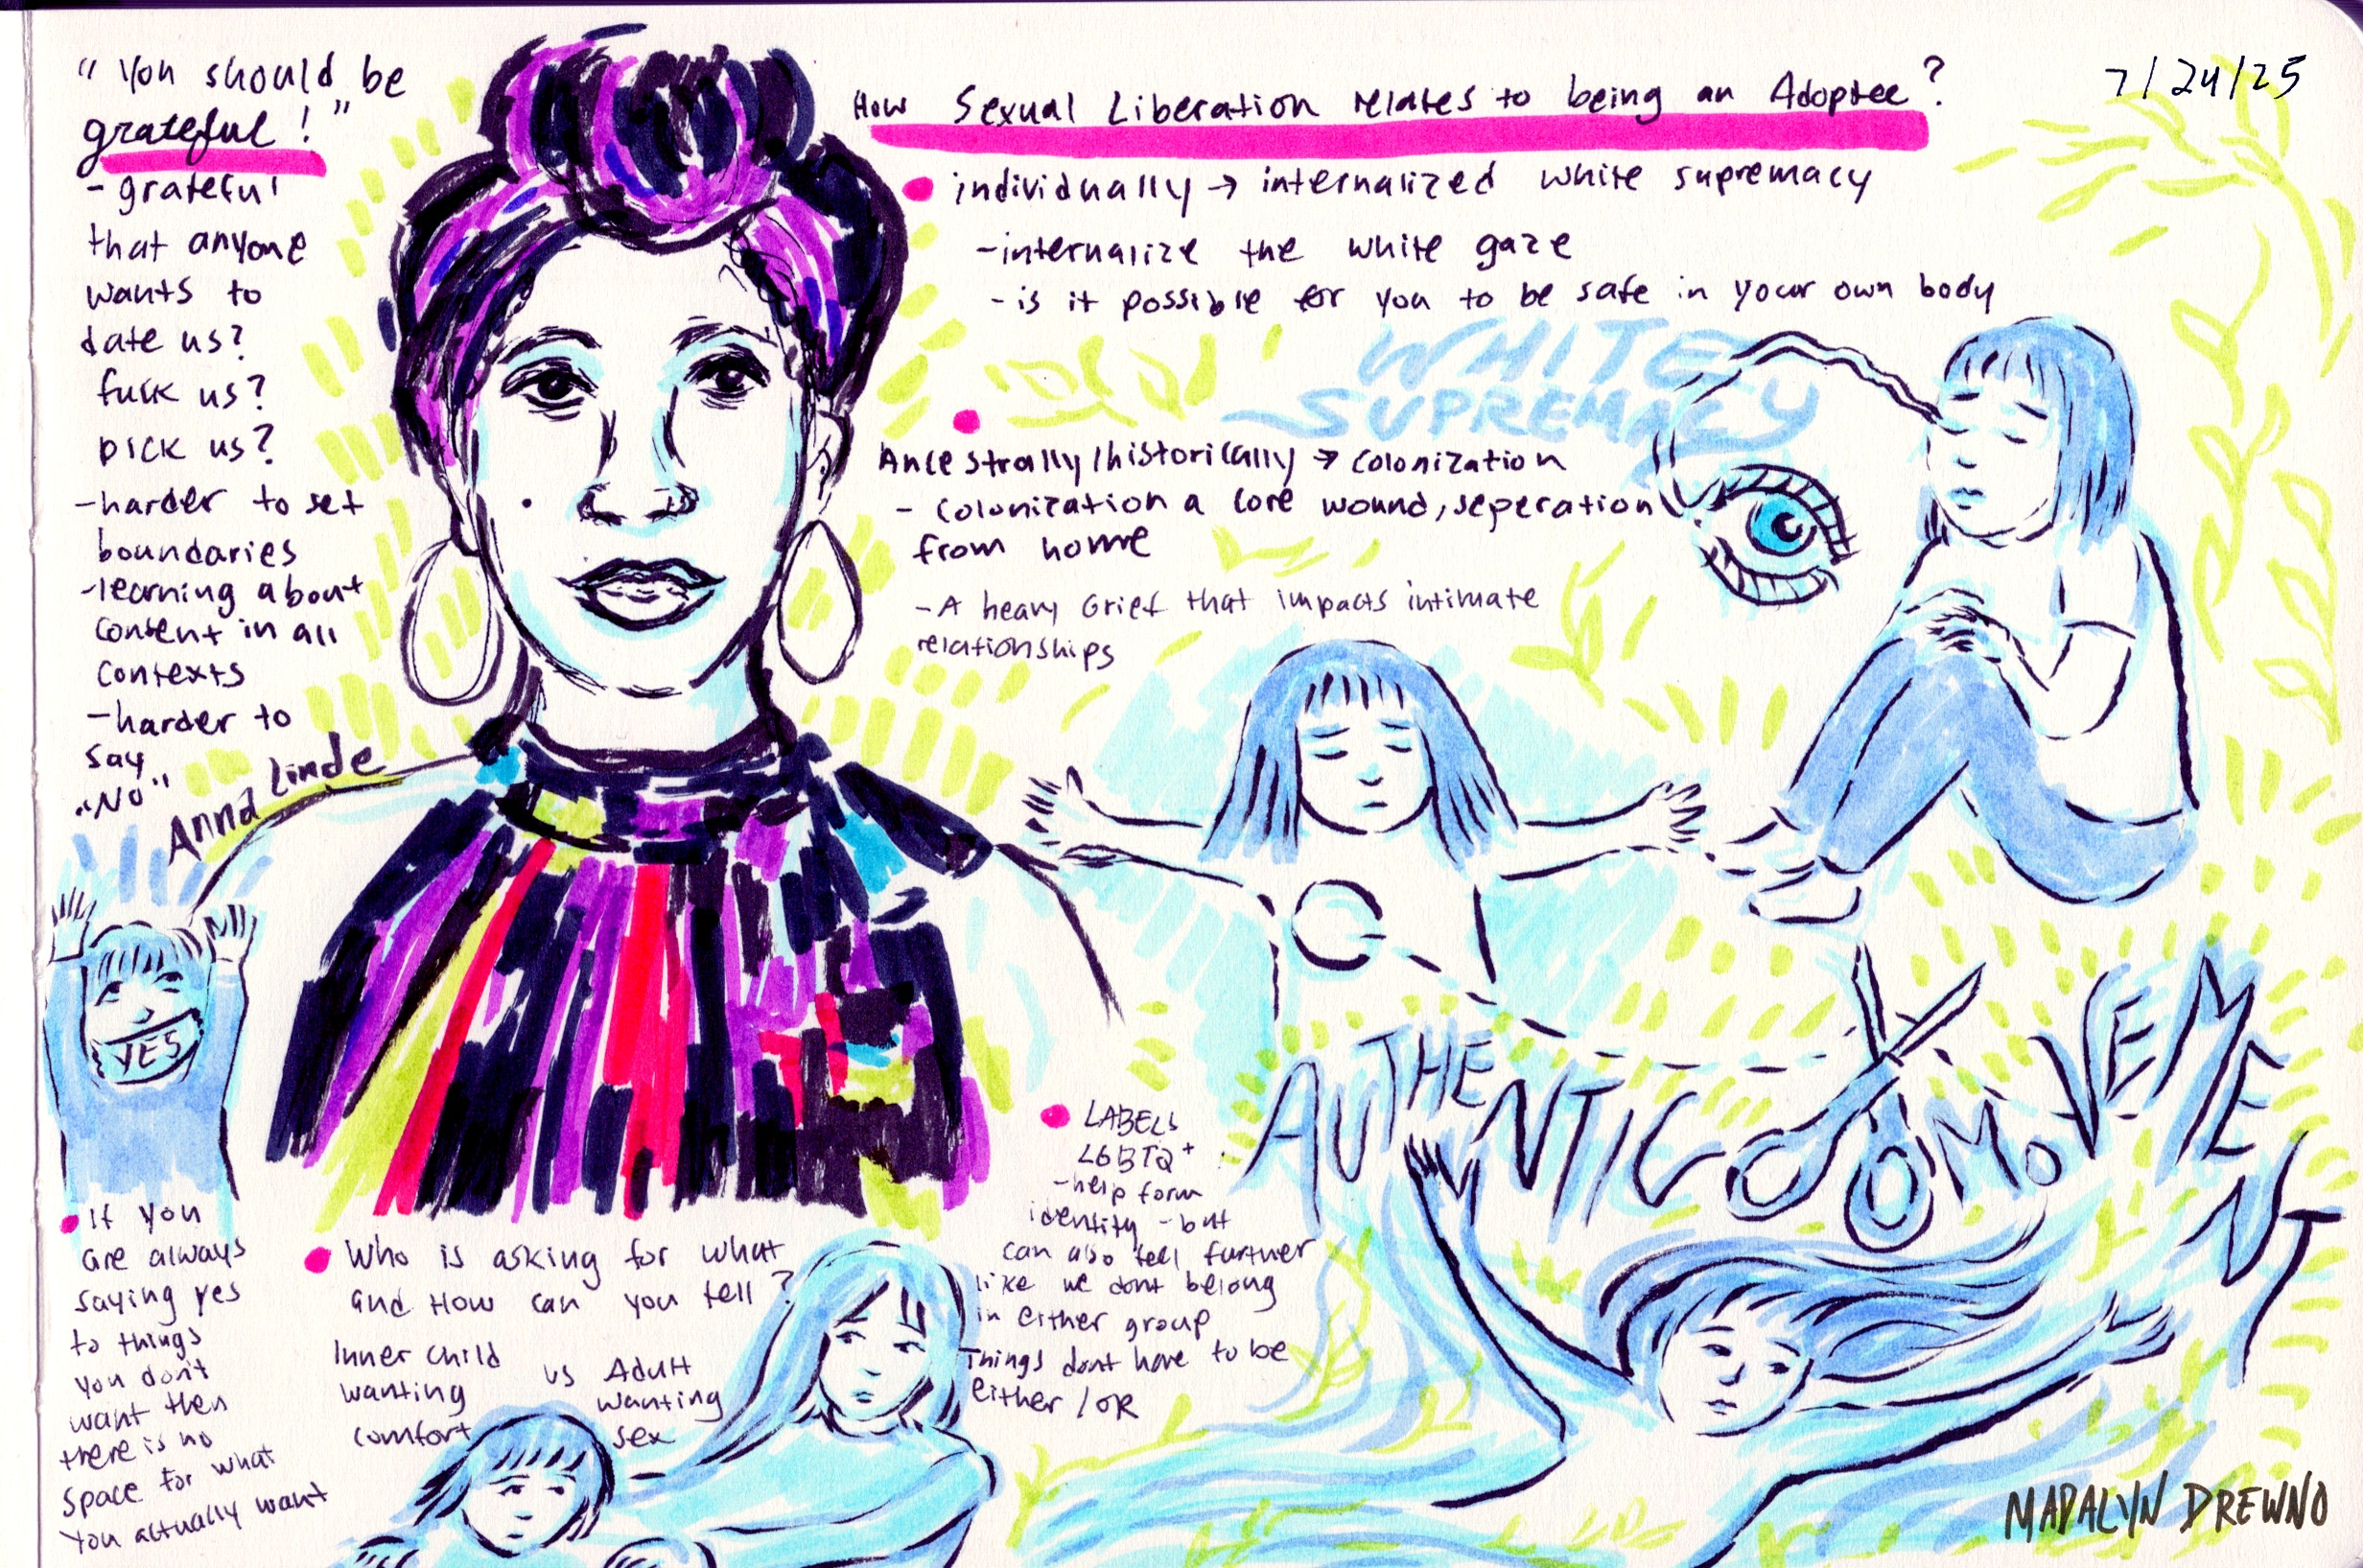 "You should be
grateful!"
- grateful
that anyone
wants to
date us?
fuck us?
pick us?
-harder to set
boundaries
-learning about
consent in all
contexts
-harder to
say
"NO"
Anna Linde
YES
If you
are always
saying yes
to things
you don't
want then
there is no
space for what
you actually want
How Sexual Liberation relates to being an Adoptee?
7/24/25
individually → internalized white supremacy
-internalize the white gaze
-is it possible for you to be safe in your own body
WHITE
SUPREMACY
Ancestrally/historically → colonization
- colonization a core wound, seperation
from home
-A heavy Grief that impacts intimate
relationships
AUTHENTIC MOVEMENT
LABELS
LGBTQ+
-help form
identity - but
can also feel further
like we dont belong
in either group
Things dont have to be
either / OR
Who is asking for what
and How can you tell?
Inner child
wanting
comfort
vs Adult
wanting
sex
MADALYN DREWNO